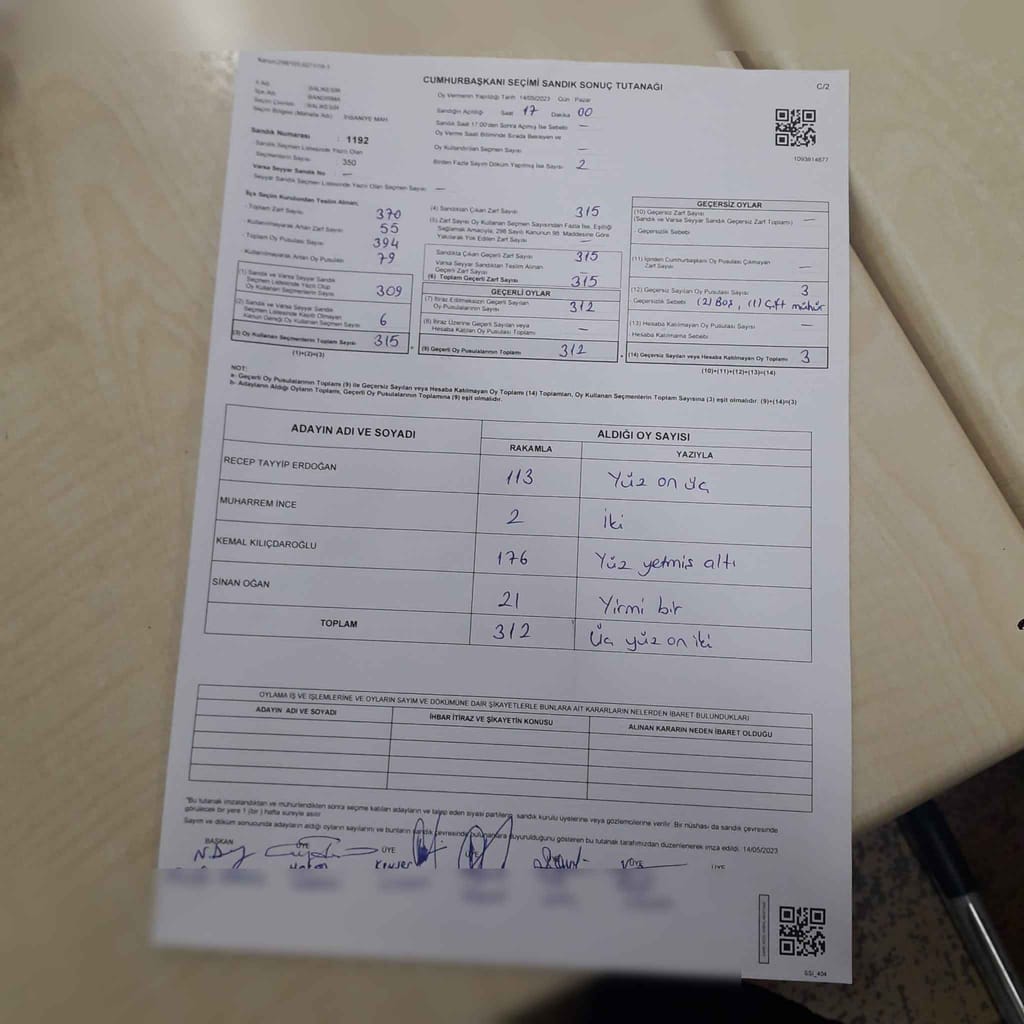 CUMHURBAŞKANI SEÇİMİ SANDIK SONUÇ TUTANAĞI
C/2
İl Adı BALIKESİR
İlçe Adı BANDIRMA
Seçim Çevresi BALIKESİR
Seçim Bölgesi (Mahalle Adı) İHSANİYE MAH.
Sandık Numarası : 1192
Sandık Seçmen Listesinde Yazılı Olan
Seçmenlerin Sayısı : 350
Varsa Seyyar Sandık No : —
Seyyar Sandık Seçmen Listesinde Yazılı Olan Seçmen Sayısı : —
Oy Vermenin Yapıldığı Tarih 14/05/2023 Gün : Pazar
Sandığın Açıldığı Saat 17 Dakika 00
Sandık Saat 17:00'den Sonra Açılmış İse Sebebi —
Oy Verme Saati Bitiminde Sırada Bekleyen ve
Oy Kullandırılan Seçmen Sayısı —
Birden Fazla Sayım Döküm Yapılmış İse Sayısı 2
1093814877
İlçe Seçim Kurulundan Teslim Alınan;
- Toplam Zarf Sayısı 370
- Kullanılmayarak Artan Zarf Sayısı 55
- Toplam Oy Pusulası Sayısı 394
- Kullanılmayarak Artan Oy Pusulası 79
(1) Sandık ve Varsa Seyyar Sandık
Seçmen Listesinde Yazılı Olup
Oy Kullanan Seçmenlerin Sayısı 309
(2) Sandık ve Varsa Seyyar Sandık
Seçmen Listesinde Kayıtlı Olmayan
Kanun Gereği Oy Kullanan Seçmen Sayısı 6
(3) Oy Kullanan Seçmenlerin Toplam Sayısı 315
(1)+(2)=(3)
(4) Sandıktan Çıkan Zarf Sayısı 315
(5) Zarf Sayısı Oy Kullanan Seçmen Sayısından Fazla İse, Eşitliği
Sağlamak Amacıyla; 298 Sayılı Kanunun 98. Maddesine Göre
Yakılarak Yok Edilen Zarf Sayısı —
Sandıkta Çıkan Geçerli Zarf Sayısı 315
Varsa Seyyar Sandıktan Teslim Alınan
Geçerli Zarf Sayısı —
(6) Toplam Geçerli Zarf Sayısı 315
GEÇERLİ OYLAR
(7) İtiraz Edilmeksizin Geçerli Sayılan
Oy Pusulalarının Sayısı 312
(8) İtiraz Üzerine Geçerli Sayılan veya
Hesaba Katılan Oy Pusulası Toplamı —
(9) Geçerli Oy Pusulalarının Toplamı 312
GEÇERSİZ OYLAR
(10) Geçersiz Zarf Sayısı
(Sandık ve Varsa Seyyar Sandık Geçersiz Zarf Toplamı) —
Geçersizlik Sebebi
(11) İçinden Cumhurbaşkanı Oy Pusulası Çıkmayan
Zarf Sayısı —
(12) Geçersiz Sayılan Oy Pusulası Sayısı 3
Geçersizlik Sebebi (2) Boş, (1) Çift mühür
(13) Hesaba Katılmayan Oy Pusulası Sayısı —
Hesaba Katılmama Sebebi
(14) Geçersiz Sayılan veya Hesaba Katılmayan Oy Toplamı 3
(10)+(11)+(12)+(13)=(14)
NOT:
a- Geçerli Oy Pusulalarının Toplamı (9) ile Geçersiz Sayılan veya Hesaba Katılmayan Oy Toplamı (14) Toplamları, Oy Kullanan Seçmenlerin Toplam Sayısına (3) eşit olmalıdır. (9)+(14)=(3)
b- Adayların Aldığı Oyların Toplamı, Geçerli Oy Pusulalarının Toplamına (9) eşit olmalıdır.
ADAYIN ADI VE SOYADI ALDIĞI OY SAYISI
RAKAMLA YAZIYLA
RECEP TAYYİP ERDOĞAN 113 Yüz on üç
MUHARREM İNCE 2 İki
KEMAL KILIÇDAROĞLU 176 Yüz yetmiş altı
SİNAN OĞAN 21 Yirmi bir
TOPLAM 312 Üç yüz on iki
OYLAMA İŞ VE İŞLEMLERİNE VE OYLARIN SAYIM VE DÖKÜMÜNE DAİR ŞİKAYETLERLE BUNLARA AİT KARARLARIN NELERDEN İBARET BULUNDUKLARI
ADAYIN ADI VE SOYADI İHBAR İTİRAZ VE ŞİKAYETİN KONUSU ALINAN KARARIN NEDEN İBARET OLDUĞU
"Bu tutanak imzalandıktan ve mühürlendikten sonra seçime katılan adayların ve talep eden siyasi partilerin sandık kurulu üyelerine veya gözlemcilerine verilir. Bir nüshası da sandık çevresinde
görülecek bir yere 1 (bir) hafta süreyle asılır
Sayım ve döküm sonucunda adayların aldığı oyların sayılarını ve bunların sandık çevresinde bulunanlara duyurulduğunu gösteren bu tutanak tarafımızdan düzenlenerek imza edildi. 14/05/2023
BAŞKAN ÜYE ÜYE ÜYE
SSİ_404